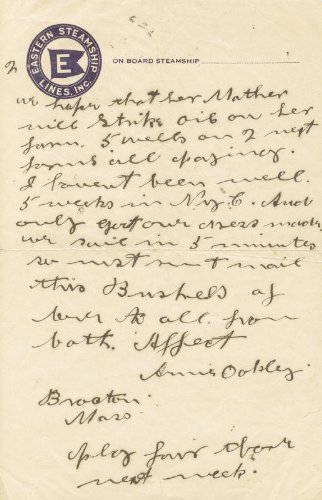 EASTERN STEAMSHIP
LINES, INC.
E
ON BOARD STEAMSHIP
2
we hope that her Mother
will strike oil on her
farm. 5 wells on 2 next
farms all paying.
I havent been well.
5 weeks in N.Y.C. And
only got our dress made
we sail in 5 minutes
so must mail
this Bushels of
love to all from
both. Affect
Annie Oakley.
Brocton
Mass.
play fair there
next week.